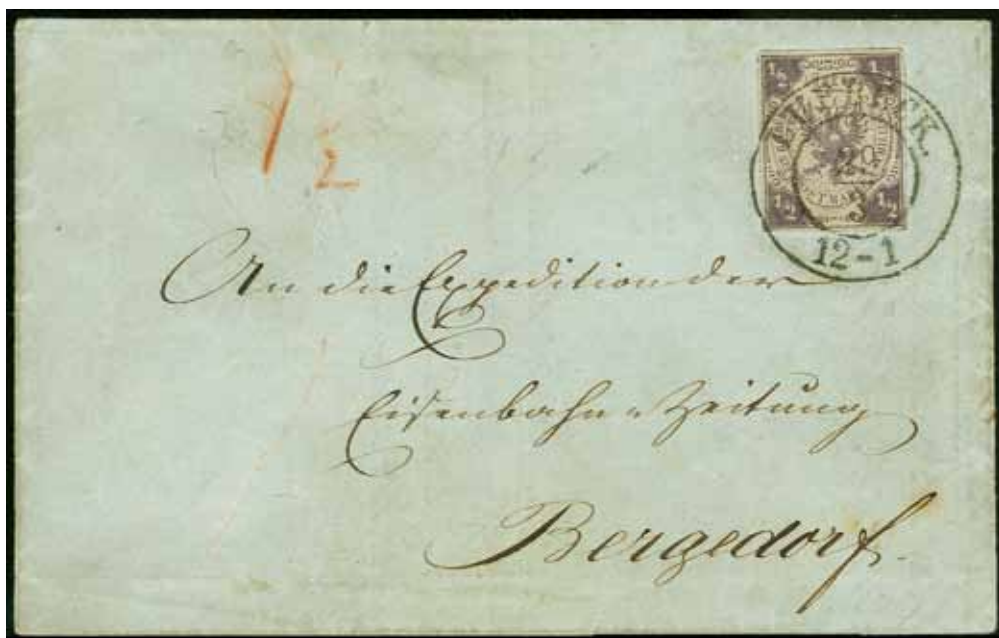 1/2
1/2 1/2
20
3
1/2 1/2
12-1
An die Expedition der
Eisenbahn-Zeitung
Bergedorf.